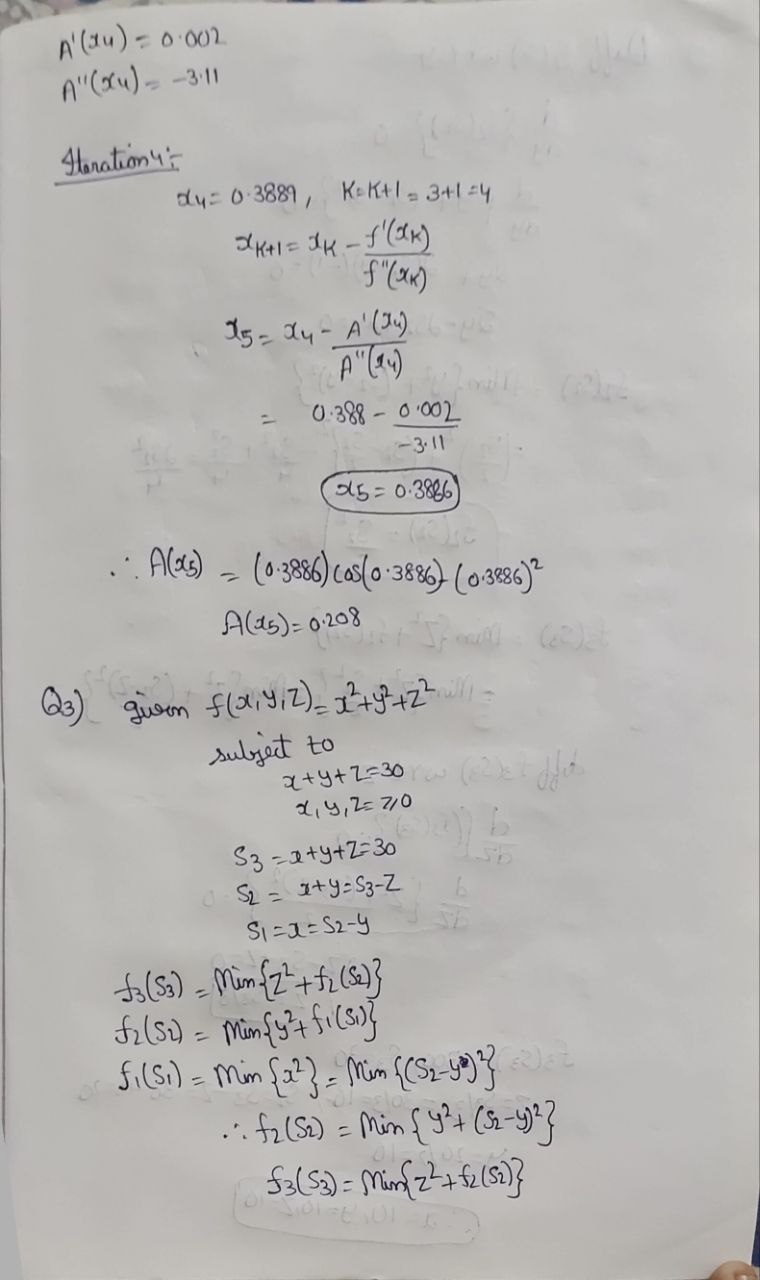 A'(x4) = 0.002
A''(x4) = -3.11
Iteration 4:-
x4 = 0.3889, K=K+1 = 3+1=4
xK+1 = xK - f'(xK)
f''(xK)
x5 = x4 - A'(x4)
A''(x4)
= 0.388 - 0.002
-3.11
x5 = 0.3886
∴ A(x5) = (0.3886) cos(0.3886) - (0.3886)²
A(x5) = 0.208
Q3) given f(x,y,z) = x²+y²+z²
subject to
x+y+z=30
x,y,z=≥0
S3 = x+y+z=30
S2 = x+y=S3-z
S1 = x = S2-y
f3(S3) = Min{z²+f2(S2)}
f2(S2) = Min{y²+f1(S1)}
f1(S1) = Min{x²} = Min{(S2-y)²}
∴ f2(S2) = Min{y²+(S2-y)²}
f3(S3) = Min{z²+f2(S2)}